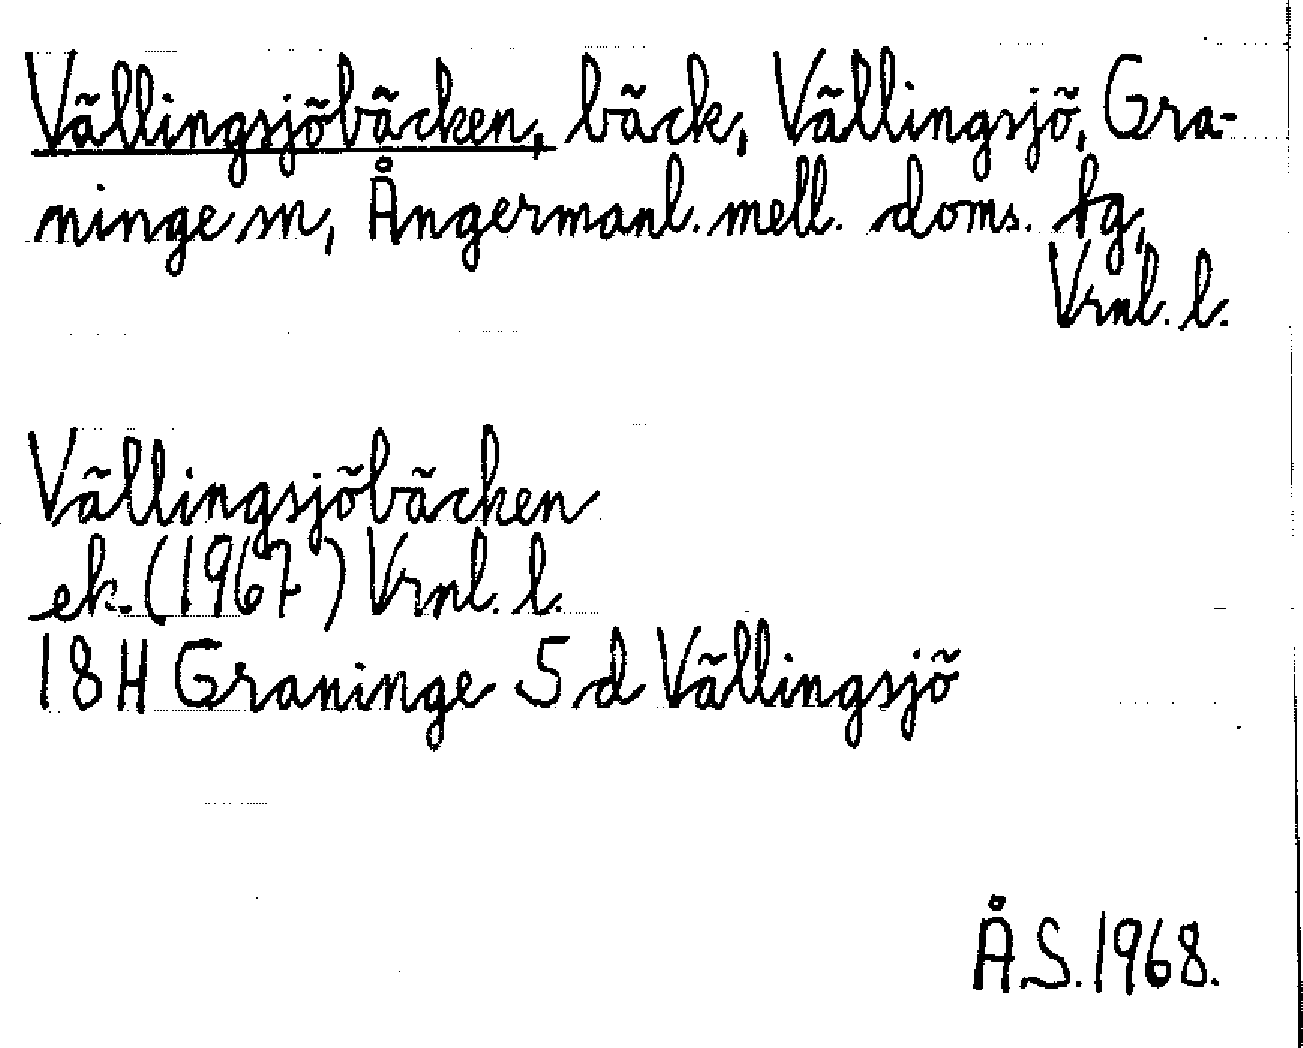 Vällingsjöbäcken, bäck, Vällingsjö, Gra-
ninge sn, Ångermanl. mell. doms. tg,
Vrnl. l.
Vällingsjöbäcken
ek. (1967) Vrnl. l.
18H Graninge 5 d Vällingsjö
Å.S. 1968.